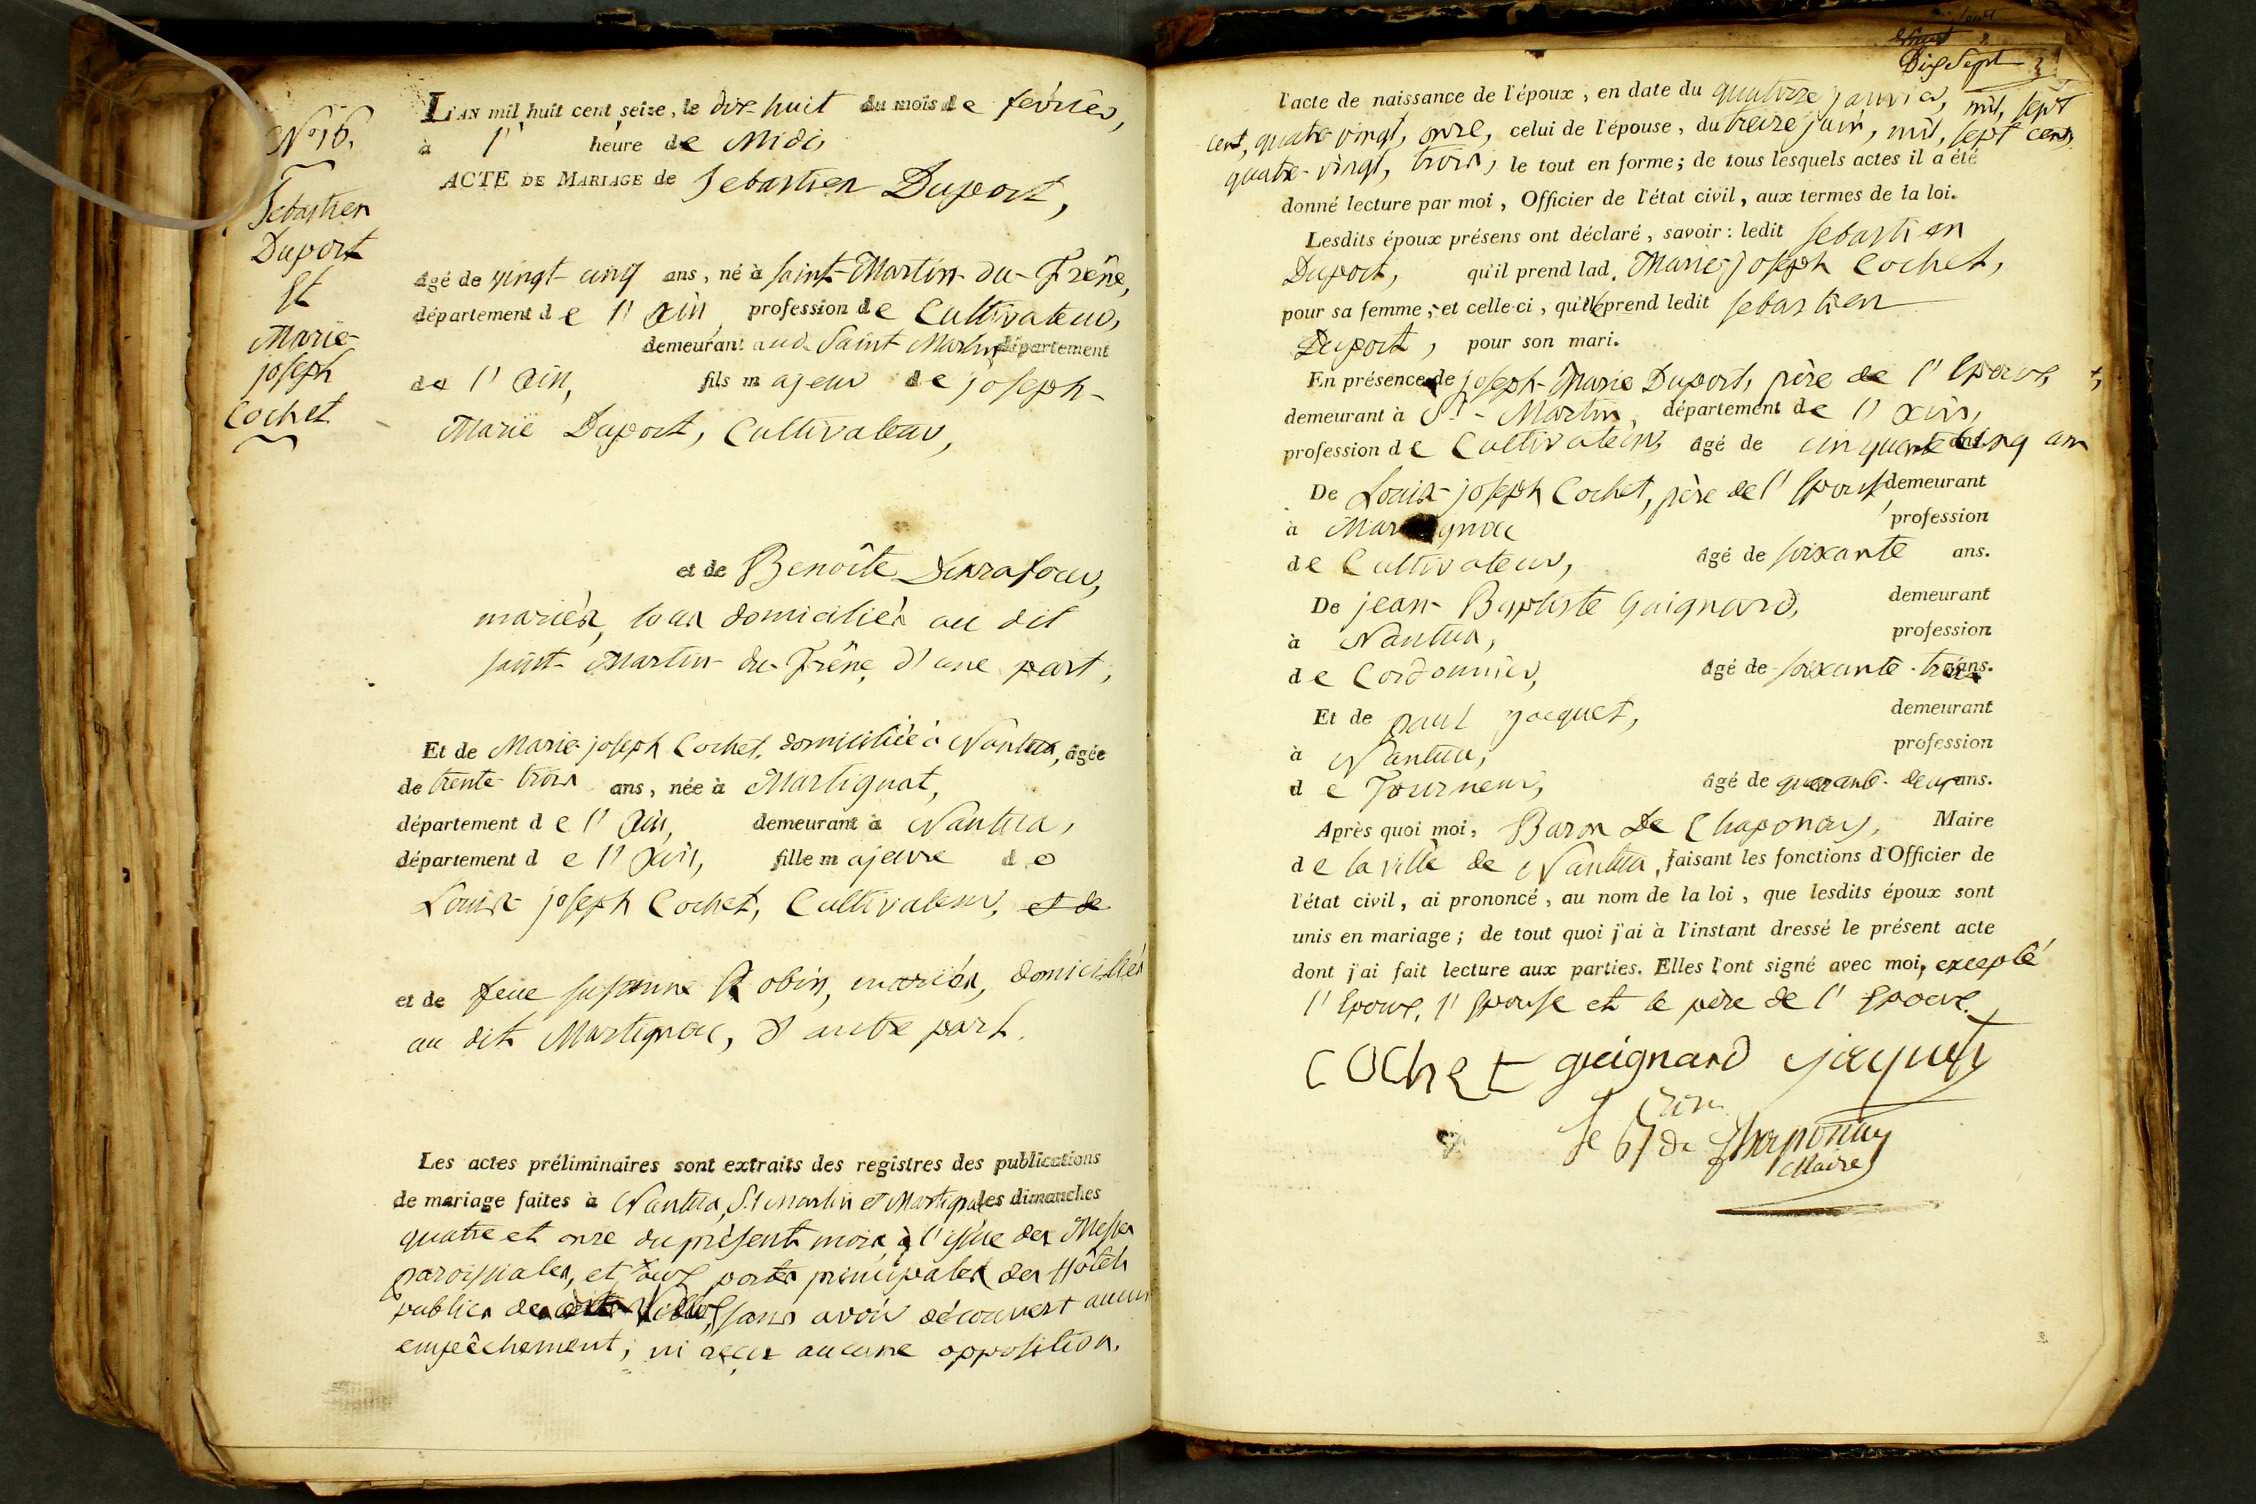 N° 16.
Sebastien
Duport
Et
Marie-
joseph
Cochet
L'AN mil huit cent seize, le dix-huit du mois de février,
à l' heure de Midi,
ACTE DE MARIAGE de Sebastien Duport,
âgé de vingt-cinq ans, né à Saint-Martin-du-Frêne,
département de l'Ain, profession de Cultivateur,
demeurant aud. Saint Martin département
de l'Ain, fils majeur de joseph-
Marie Duport, Cultivateur,
et de Benoîte
mariés, tous domiciliés au dit
saint-Martin-du-Frêne, d'une part,
Et de Marie-joseph Cochet, domiciliée à Nantua, âgée
de trente-trois ans, née à Martignat,
département de l'Ain, demeurant à Nantua,
département de l'Ain, fille majeure de
Louis-joseph Cochet, Cultivateur, et de
et de feue Susanne Robin, mariés, domiciliés
au dit Martignac, d'autre part.
Les actes préliminaires sont extraits des registres des publications
de mariage faites à Nantua, St Martin et Martignat les dimanches
quatre et onze du présent mois, à l'issue des Messes
paroissiales, et aux portes principales des Hôtels
publics des dites Villes, sans avoir découvert aucun
empêchement, ni reçu aucune opposition.
Dix Sept
l'acte de naissance de l'époux, en date du quatorze janvier, mil, sept
cent, quatre vingt, onze, celui de l'épouse, du treize juin, mil, sept cent,
quatre-vingt, trois, le tout en forme; de tous lesquels actes il a été
donné lecture par moi, Officier de l'état civil, aux termes de la loi.
Lesdits époux présens ont déclaré, savoir: ledit Sebastien
Duport, qu'il prend lad. Marie-joseph Cochet,
pour sa femme; et celle-ci, qu'elle prend ledit Sebastien
Duport, pour son mari.
En présence de joseph-Marie Duport, père de l'Epoux,
demeurant à St-Martin, département de l'Ain,
profession de Cultivateur, âgé de cinquante cinq ans
De Louis-joseph Cochet, père de l'Epouse, demeurant
à Martignac profession
de Cultivateur, âgé de soixante ans.
De jean-Baptiste Guignard, demeurant
à Nantua, profession
de Cordonnier, âgé de soixante-trois ans.
Et de paul jacquet, demeurant
à Nantua, profession
de Tourneur, âgé de quarante-deux ans.
Après quoi moi, Baron De Chaponay, Maire
de la ville de Nantua, faisant les fonctions d'Officier de
l'état civil, ai prononcé, au nom de la loi, que lesdits époux sont
unis en mariage; de tout quoi j'ai à l'instant dressé le présent acte
dont j'ai fait lecture aux parties. Elles l'ont signé avec moi, excepté
l'Epoux, l'Epouse et le père de l'Epoux.
COChet guignard jacquet
Le Bon de Chaponay
Maire